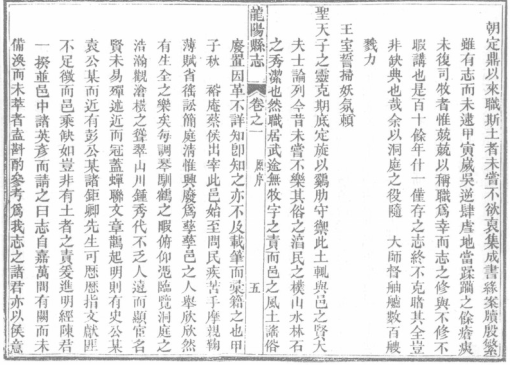 朝定鼎以來職斯土者未嘗不欲裒集成書緣案牘殷繁
雖有志而未逮甲寅歲吳逆肆虐地當蹂躪之餘瘡痍
未復司牧者惟兢兢以稱職爲幸而志之修與不修不
暇講也是百十餘年什一僅存之志終不克睹其全豈
非缺典也哉余以洞庭之役隨　大師督舳艫數百艘
戮力
王室誓掃妖氛賴
聖天子之靈克期底定旋以雞肋守禦此土輒與邑之賢大
夫士論列今昔未嘗不樂其俗之淳民之樸山水林石
之秀潔也然職居武途無牧字之責而邑之風土謠俗
龍陽縣志　卷之一　原序　五
慶置因革不詳知卽知之亦不及載筆而彙籍之也甲
子秋　裕庵蔡侯出宰此邑始至問民疾苦手摩規翱
薄賦省徭訟簡庭清惟興廢爲孳孳邑之人舉欣欣然
有生全之樂矣每調琴馴鶴之暇俯仰憑臨覽洞庭之
浩瀚觀滄棂之聳翠山川鍾秀代不乏人遠而顯宦名
賢未易殫述近而冠蓋蟬聯文章鵲起明則有史公某
袁公某而近有彭公某諸鉅卿先生可歷歷指文獻匪
不足徵而邑乘缺如豈非有土者之責爰進明經陳君
一揆並邑中諸英彥而請之曰志自嘉萬間有闕而未
備渙而未萃者盍斟酌參考爲我志之諸君亦以侯意